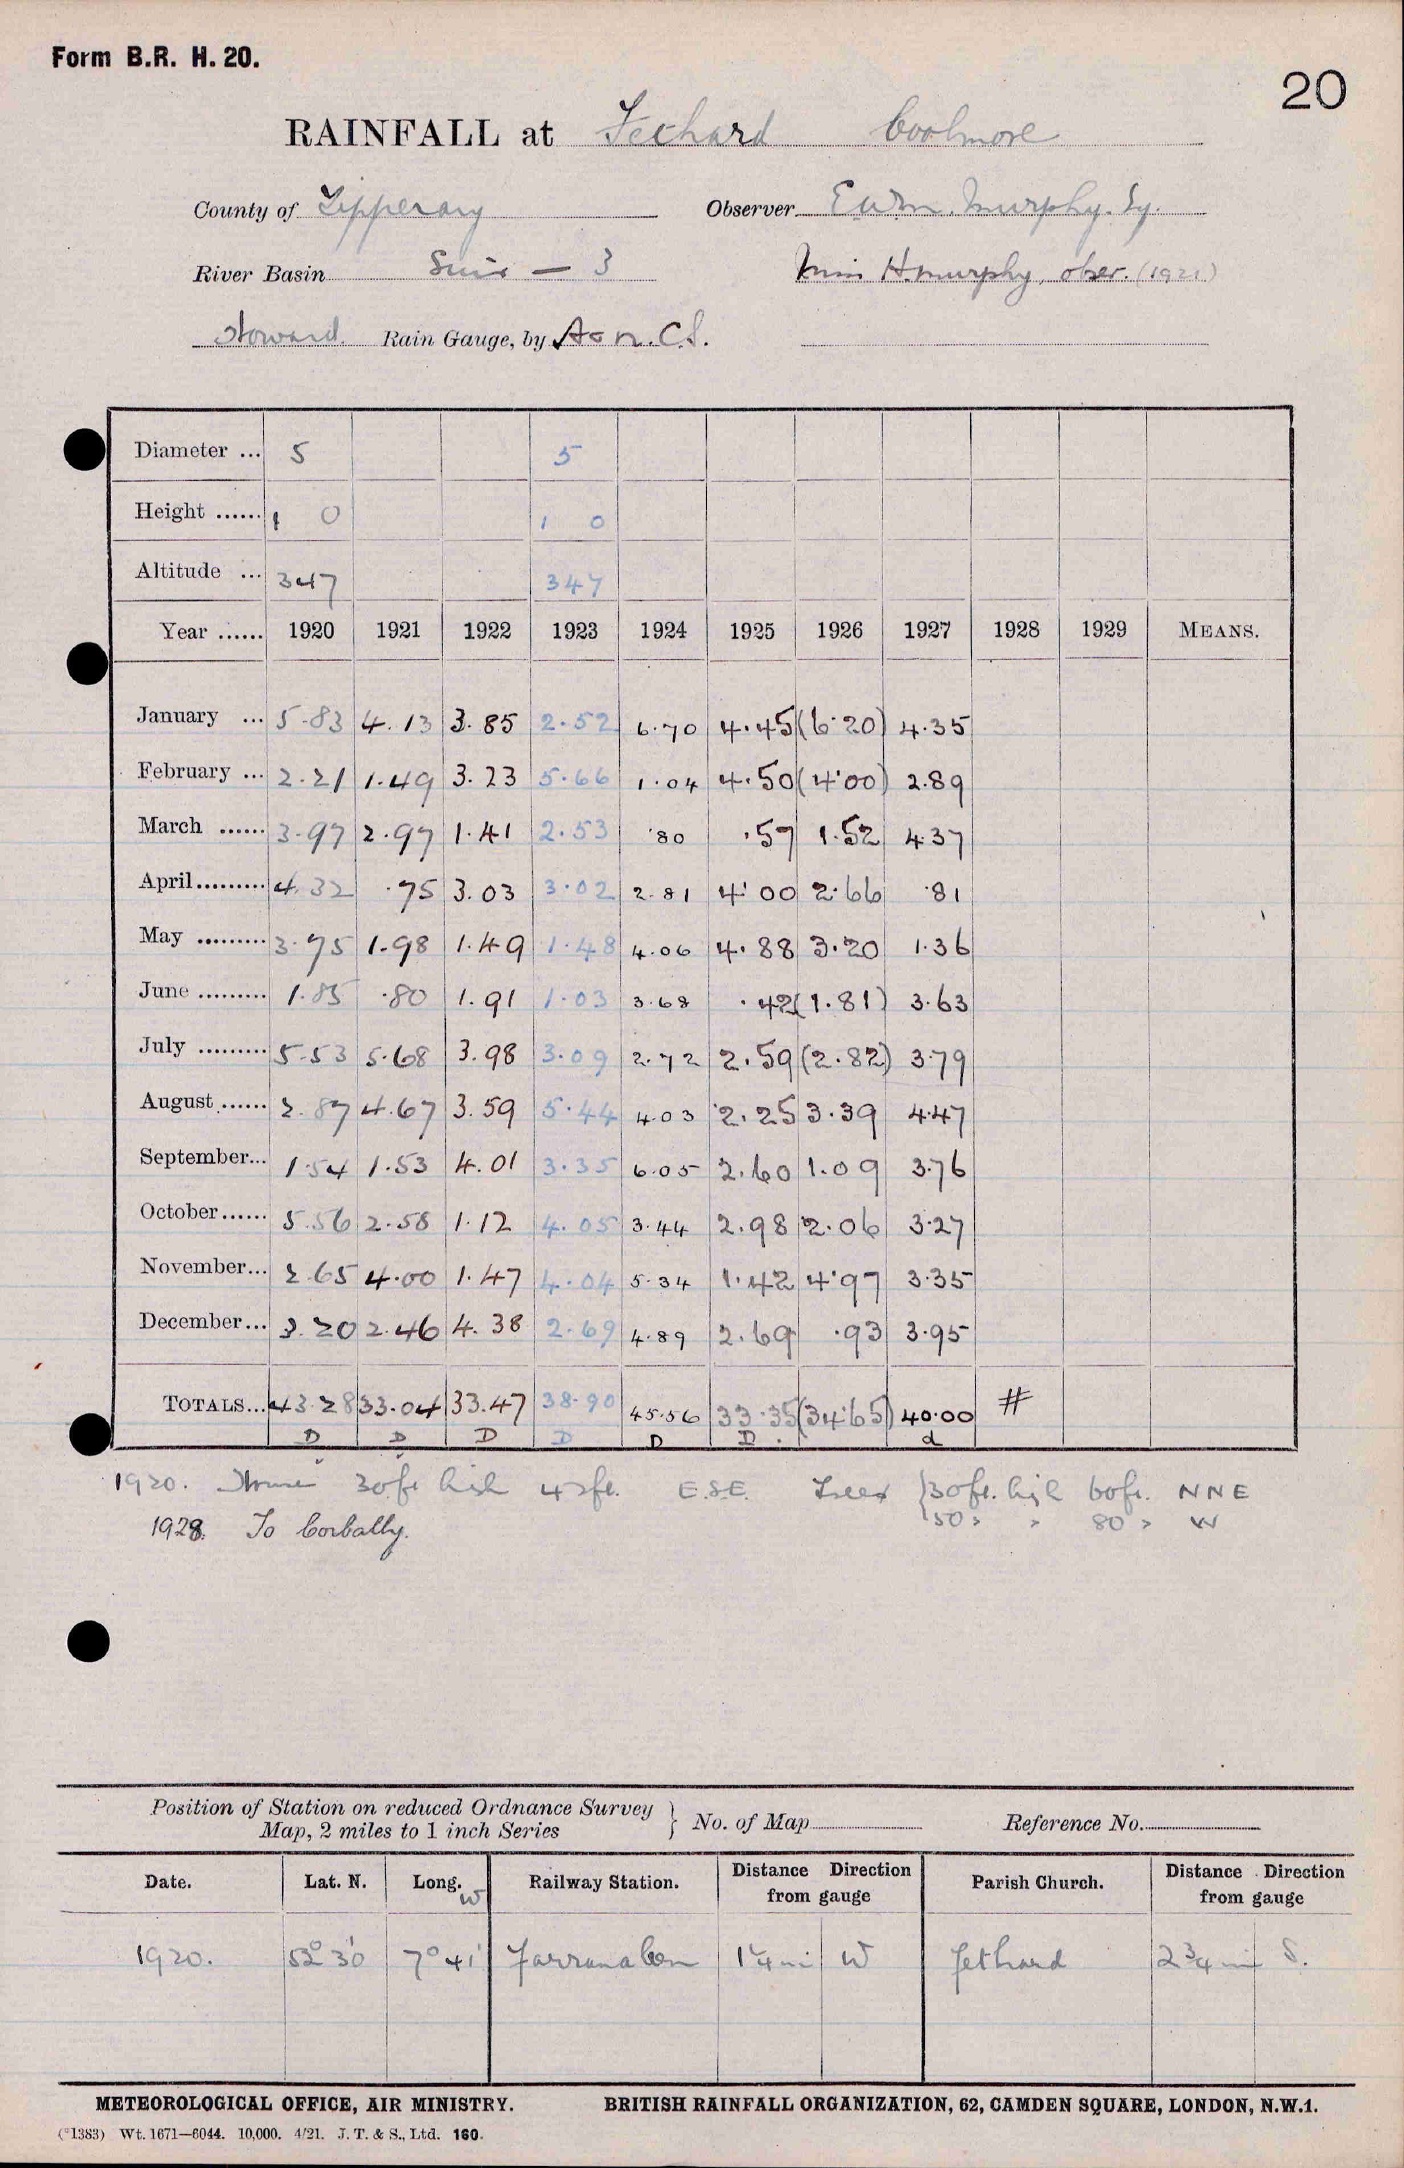 Form B.R. H. 20.
20
RAINFALL at Fethard Coolmore
County of Tipperary Observer E. Wm. Murphy. Esq.
River Basin Suir — 3 Miss H. Murphy, obser. (1921)
Howard. Rain Gauge, by A & N. C.S.
Diameter ... 5 5
Height ...... 1 0 1 0
Altitude ... 347 347
Year ...... 1920 1921 1922 1923 1924 1925 1926 1927 1928 1929 MEANS.
January ... 5.83 4.13 3.85 2.52 6.70 4.45 (6.20) 4.35
February ... 2.21 1.49 3.23 5.66 1.04 4.50 (4.00) 2.89
March ...... 3.97 2.97 1.41 2.53 .80 .57 1.52 4.37
April ......... 4.32 .75 3.03 3.02 2.81 4.00 2.66 .81
May ......... 3.75 1.98 1.49 1.48 4.06 4.88 3.20 1.36
June ......... 1.85 .80 1.91 1.03 3.68 .42 (1.81) 3.63
July ......... 5.53 5.68 3.98 3.09 2.72 2.59 (2.82) 3.79
August ...... 2.87 4.67 3.59 5.44 4.03 2.25 3.39 4.47
September... 1.54 1.53 4.01 3.35 6.05 2.60 1.09 3.76
October ...... 5.56 2.58 1.12 4.05 3.44 2.98 2.06 3.27
November... 2.65 4.00 1.47 4.04 5.34 1.42 4.97 3.35
December... 3.20 2.46 4.38 2.69 4.89 2.69 .93 3.95
TOTALS... 43.28 33.04 33.47 38.90 45.56 33.35 (34.65) 40.00 #
D D D D D D d
1920. House 30ft high 42ft. E.S.E. Trees { 30ft. high 60ft. NNE
50 " " 80 " W
1928. To Corbally.
Position of Station on reduced Ordnance Survey
Map, 2 miles to 1 inch Series } No. of Map Reference No.
Date. Lat. N. Long. W Railway Station. Distance Direction from gauge Parish Church. Distance Direction from gauge
1920. 52° 30' 7° 41' Farranaleen 1¼ mi W Fethard 2¾ mi S.
METEOROLOGICAL OFFICE, AIR MINISTRY. BRITISH RAINFALL ORGANIZATION, 62, CAMDEN SQUARE, LONDON, N.W.1.
(*1383) Wt. 1671—6044. 10,000. 4/21. J. T. & S., Ltd. 160.